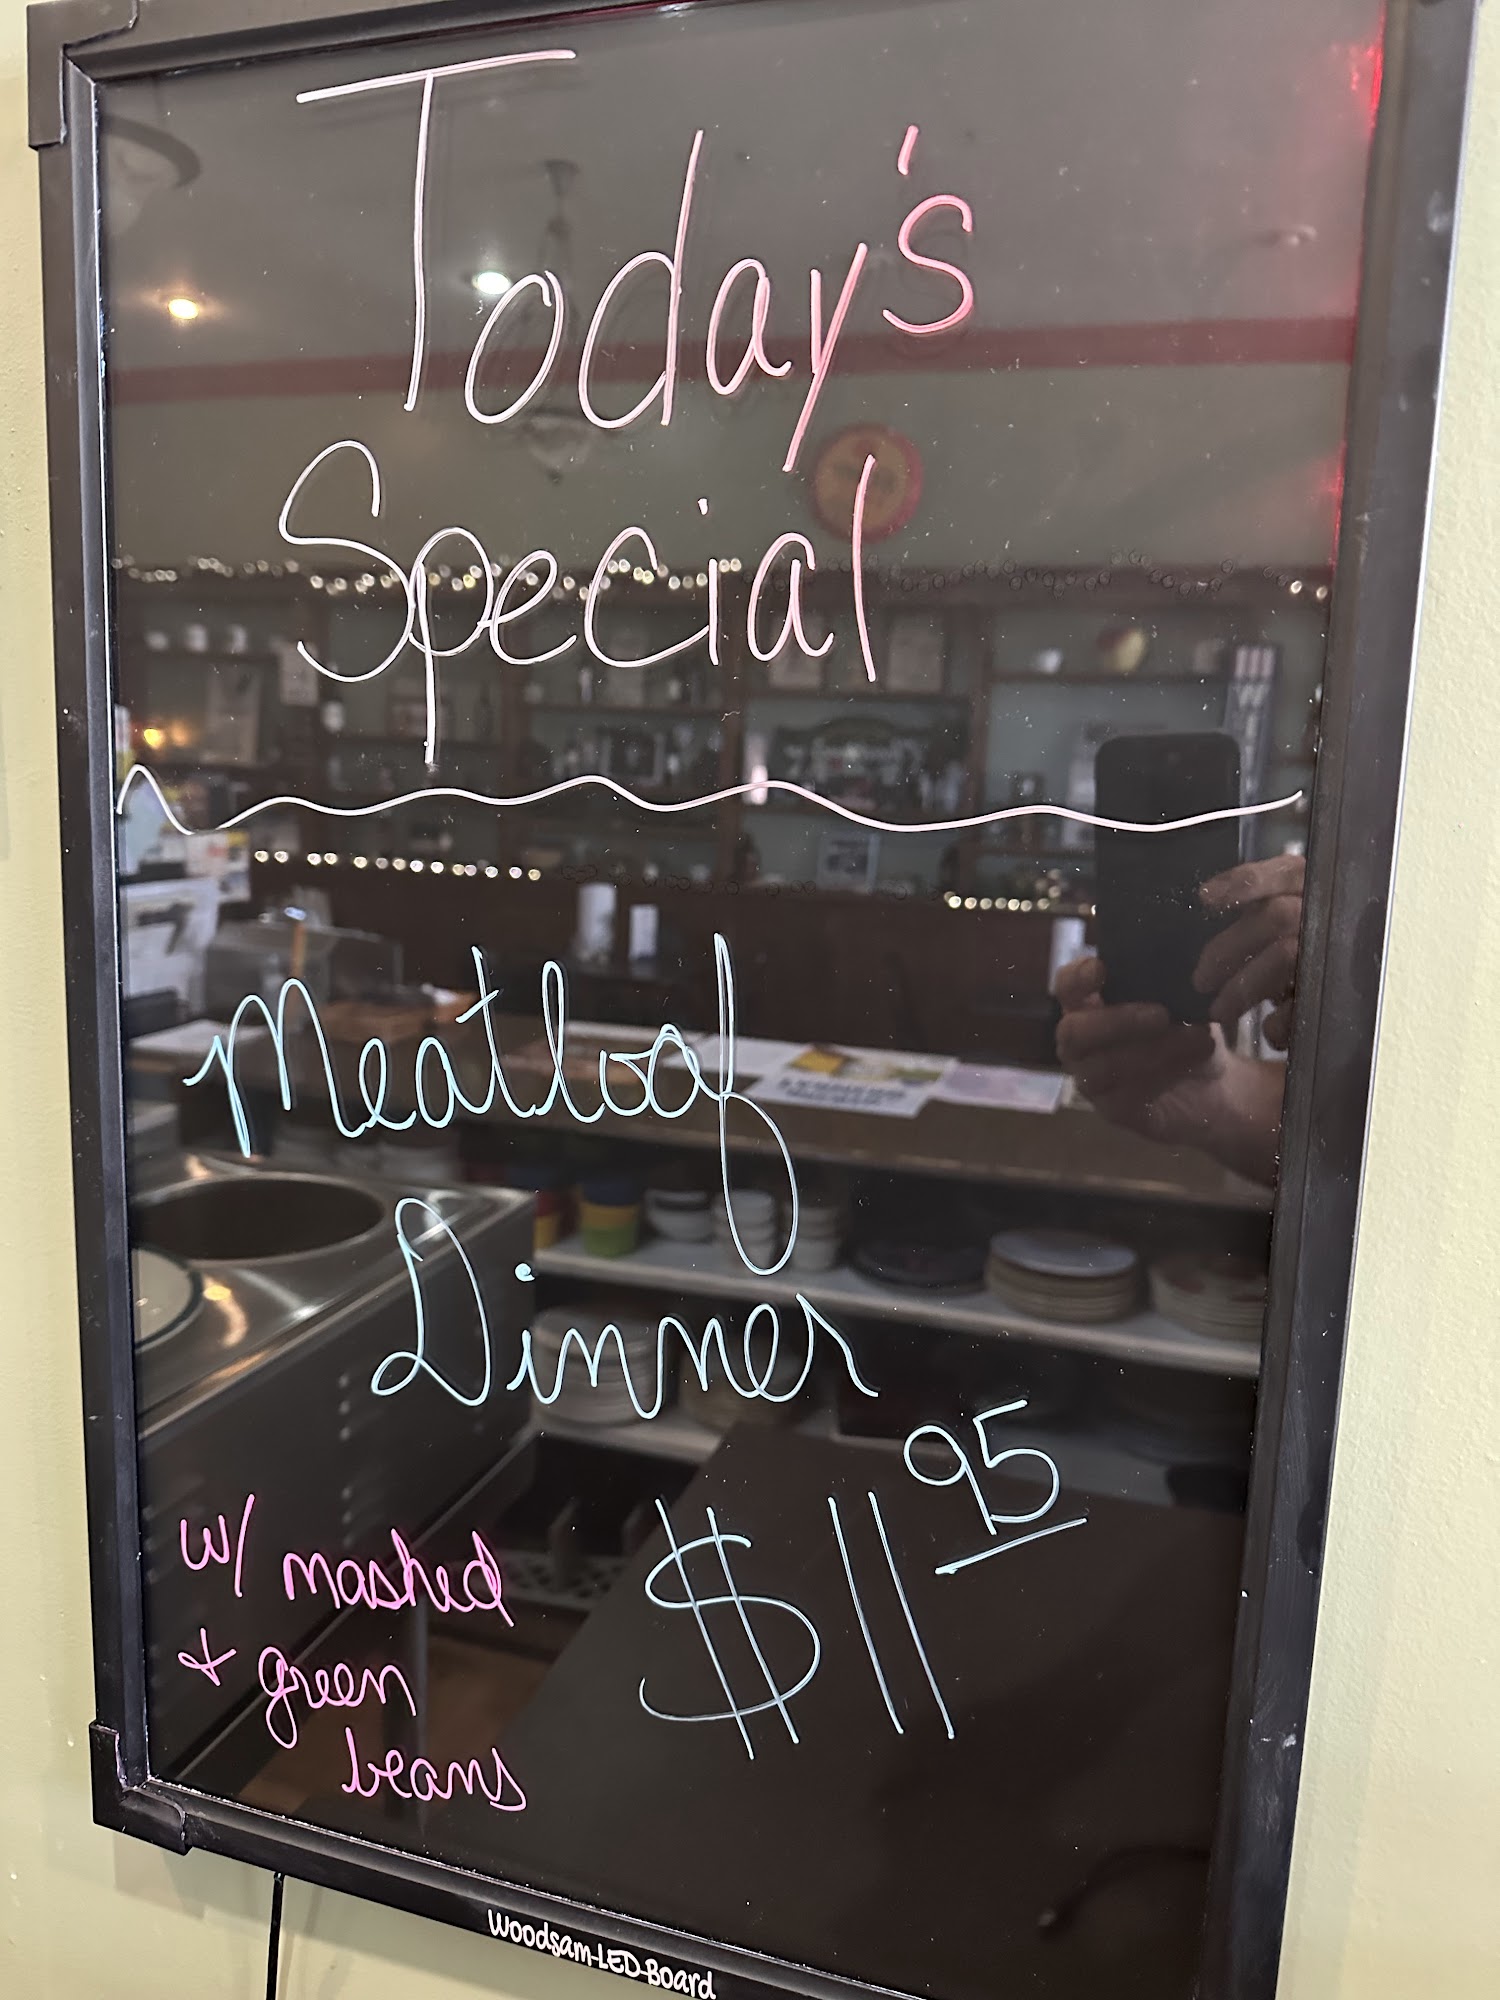 Today's
Special
Meatloaf
Dinner
$11 95
w/ mashed
+ green
beans
Woodsam-LED-Board